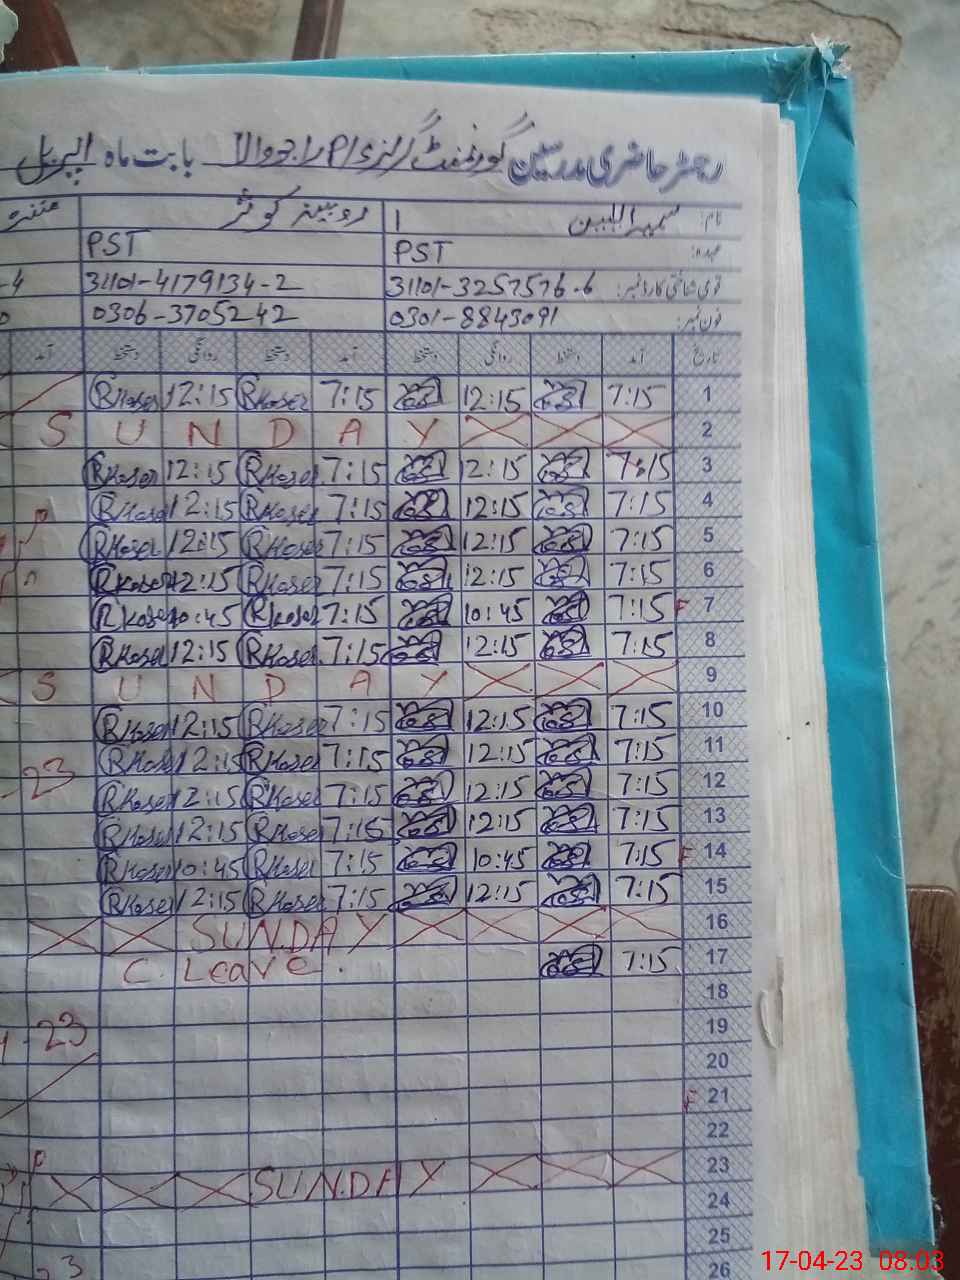 رجسٹر حاضری مدرسین گورنمنٹ گرلز P/S راجووالا بابت ماہ اپریل
نام: 1 روبینہ کوثر
عہدہ: PST PST
قومی شناختی کارڈ نمبر: 31101-3257576-6 31101-4179134-2 -4
فون نمبر: 0301-8843091 0306-3705242
تاریخ آمد دستخط روانگی دستخط آمد دستخط روانگی دستخط آمد
1 7:15 12:15 7:15 RKoser 12:15 RKoser
2 S U N D A Y
3 7:15 12:15 7:15 RKoser 12:15 RKoser
4 7:15 12:15 7:15 RKoser 12:15 RKoser
5 7:15 12:15 7:15 RKoser 12:15 RKoser
6 7:15 12:15 7:15 RKoser 12:15 RKoser
7 F 7:15 10:45 7:15 RKoser 10:45 RKoser
8 7:15 12:15 7:15 RKoser 12:15 RKoser
9 S U N D A Y
10 7:15 12:15 7:15 RKoser 12:15 RKoser
11 7:15 12:15 7:15 RKoser 12:15 RKoser
12 7:15 12:15 7:15 RKoser 12:15 RKoser 23
13 7:15 12:15 7:15 RKoser 12:15 RKoser
14 F 7:15 10:45 7:15 RKoser 10:45 RKoser
15 7:15 12:15 7:15 RKoser 12:15 RKoser
16 SUNDAY
17 7:15 C. Leave.
18
19 23
20
21 F
22
23 SUNDAY
24
25
26 23
17-04-23 08:03